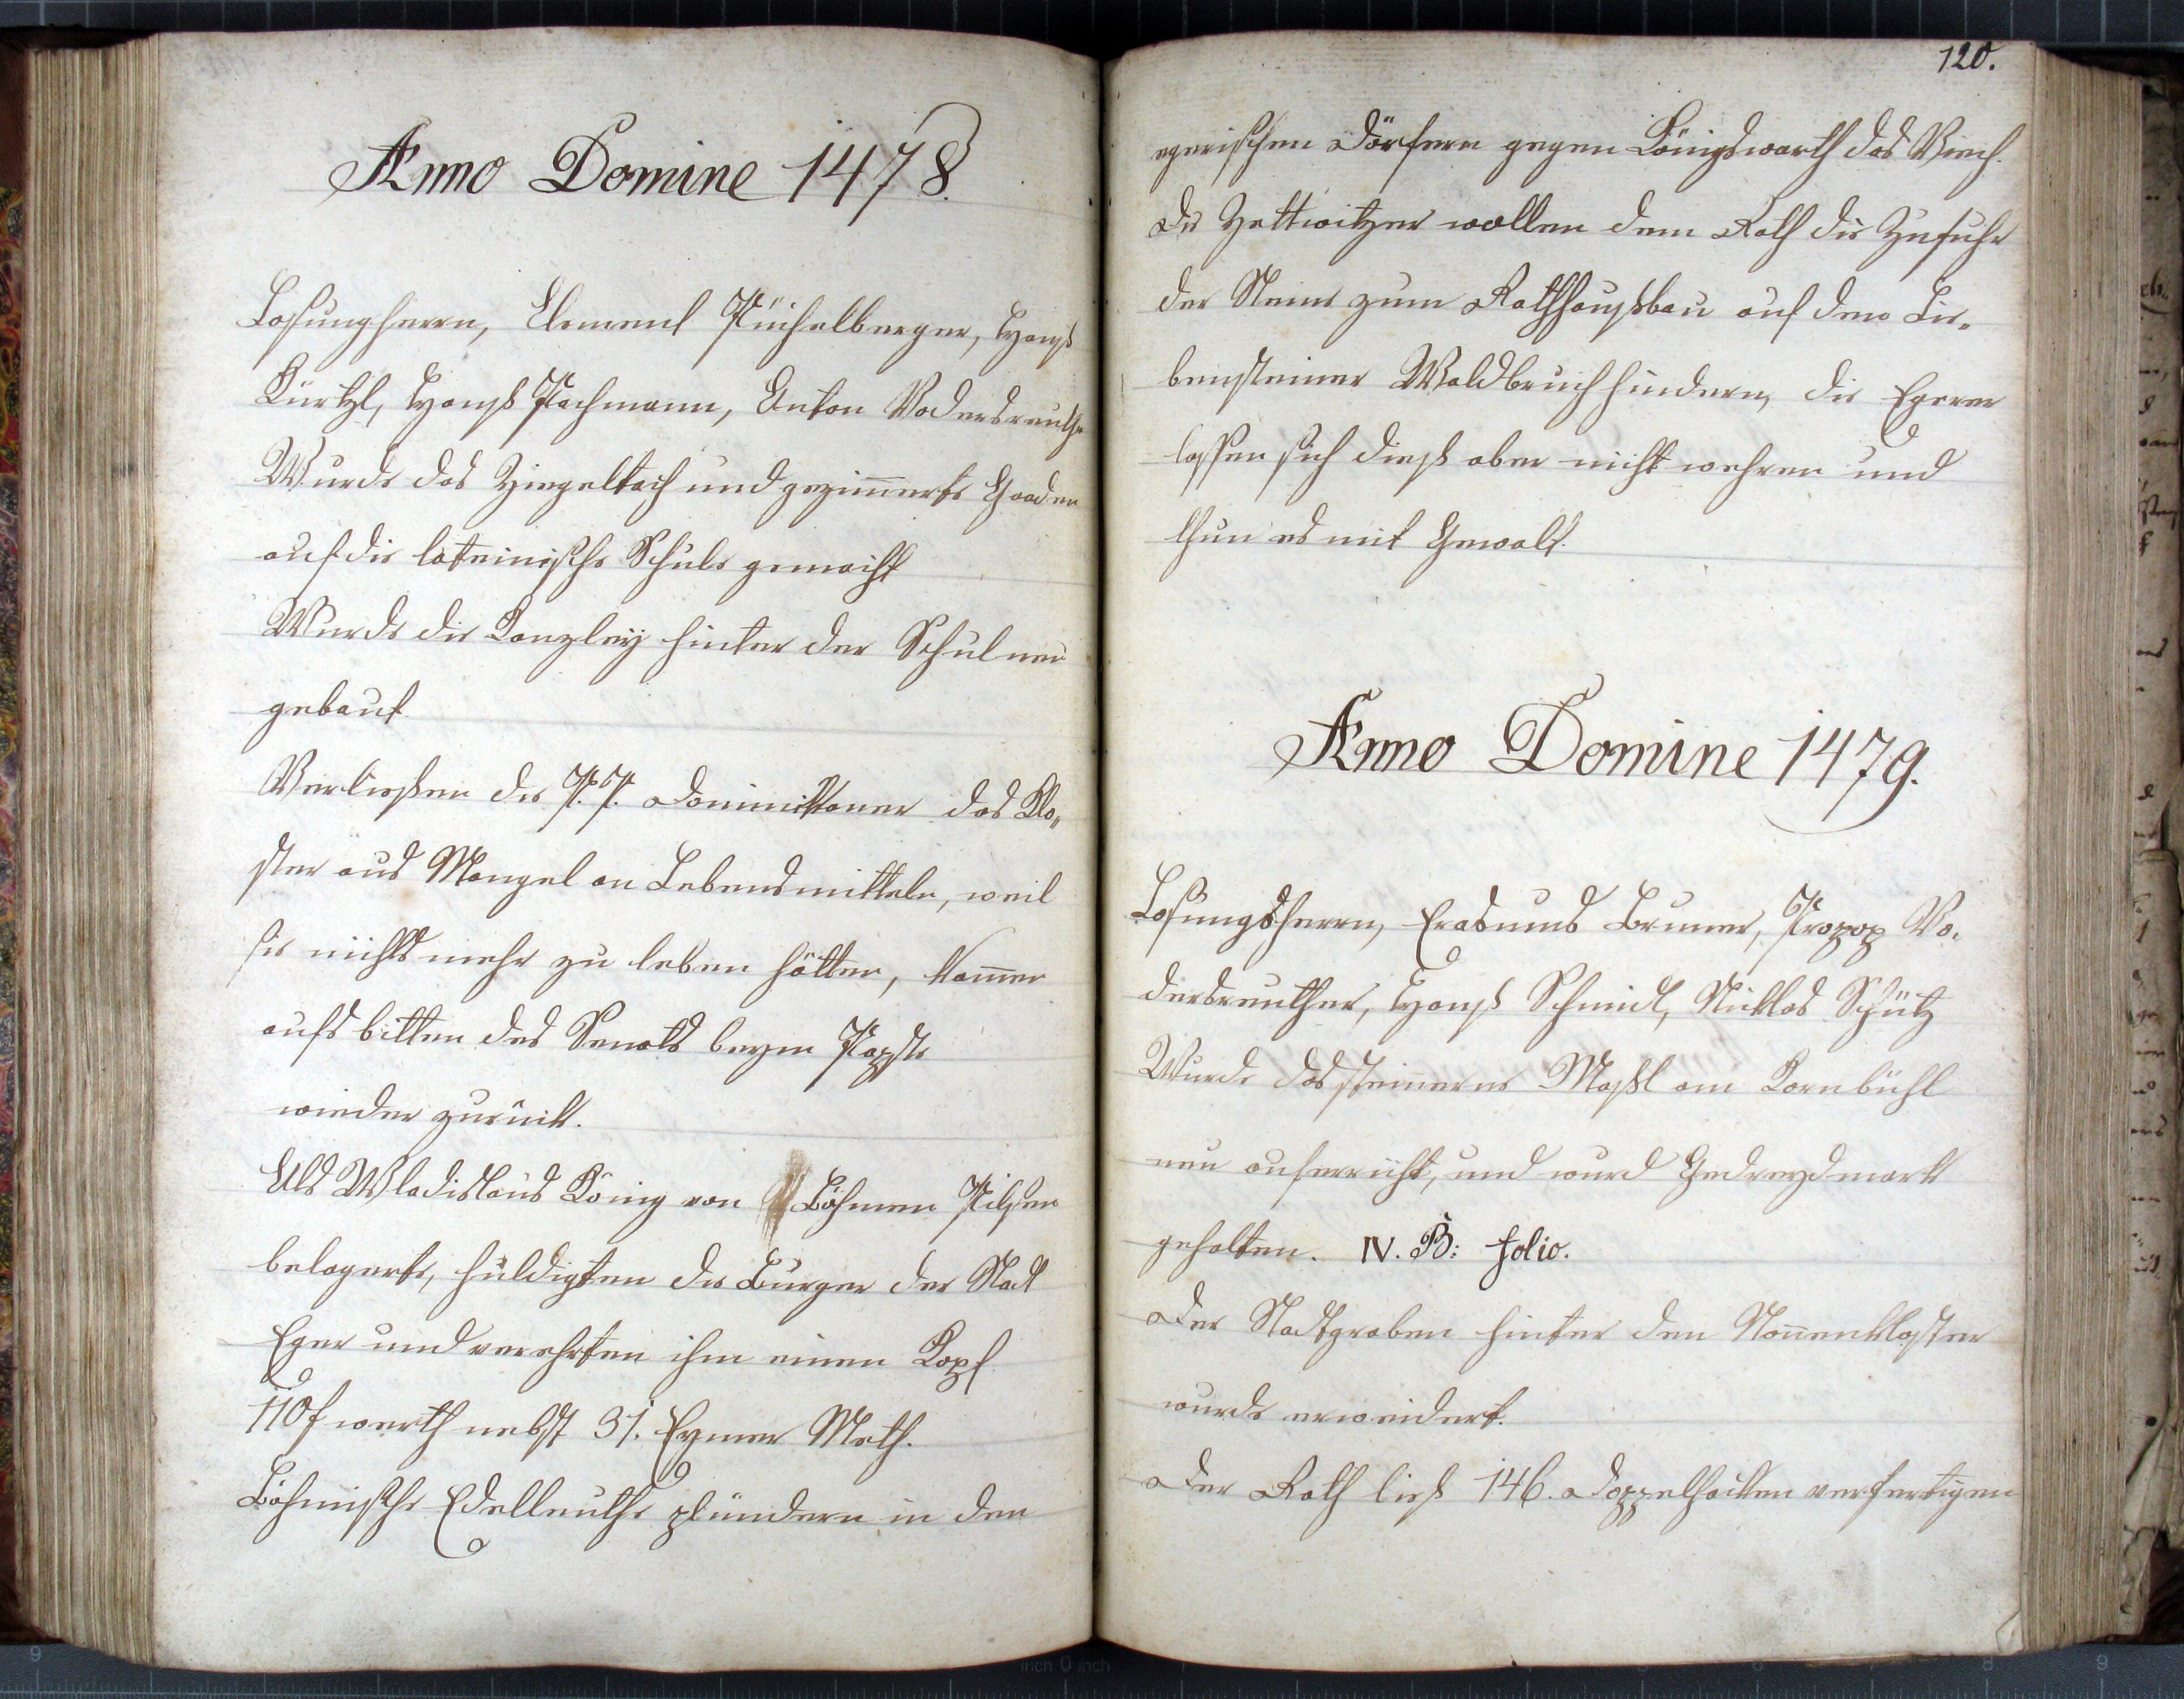 Anno Domine 1478.
Losungherrn, Clement Püchelberger, Hanß
Kürtzl, Hanß Pachmann, Anton Vodersreuth
Wurde das Ziegeltach und gezim̄erte Gaaden
auf die lateinische Schule gemacht
Wurde die Kanzley hinter der Schul neu
gebaut.
Verließen die P. P. Dominikaner das Klo„
ster aus Mangel an Lebensmitteln, weil
sie nichts mehr zu leben hätten, kam̄en
aufs bitten des Senats beym Papste
wieder zurück.
Als Wladislaus König von Böhmen Pilsen
belagerte, huldigten die Burger der Stadt
Eger und verehrten ihm einen Kopf
110f werth nebst 31. Eymer Meth.
Böhmische Edelleuthe plündern in den
120.
egerischen Dörfern gegen Königswarth das Viech.
Die Zettwitzer wollen dem Rath die Zufuhr
der Steine zum Rathhaußbau auf dem Lie„
bensteiner Waldbruch hindern, die Egerer
lassen sich dieß aber nicht wehren und
thun es mit Gewalt.
Anno Domine 1479.
Losungsherrn, Erasmus Bruner, Propop Vo„
dersreuther, Hanß Schmidl, Nicklas Schütz
Wurde das steinerne Maßl am Kornbühl
neu auferricht, und wurd Gedreydmarkt
gehalten. N. B: folio.
Der Stadtgraben hinter den Non̄enkloster
wurde erweidert.
Der Rath ließ 146. Doppelhacken verfertigen